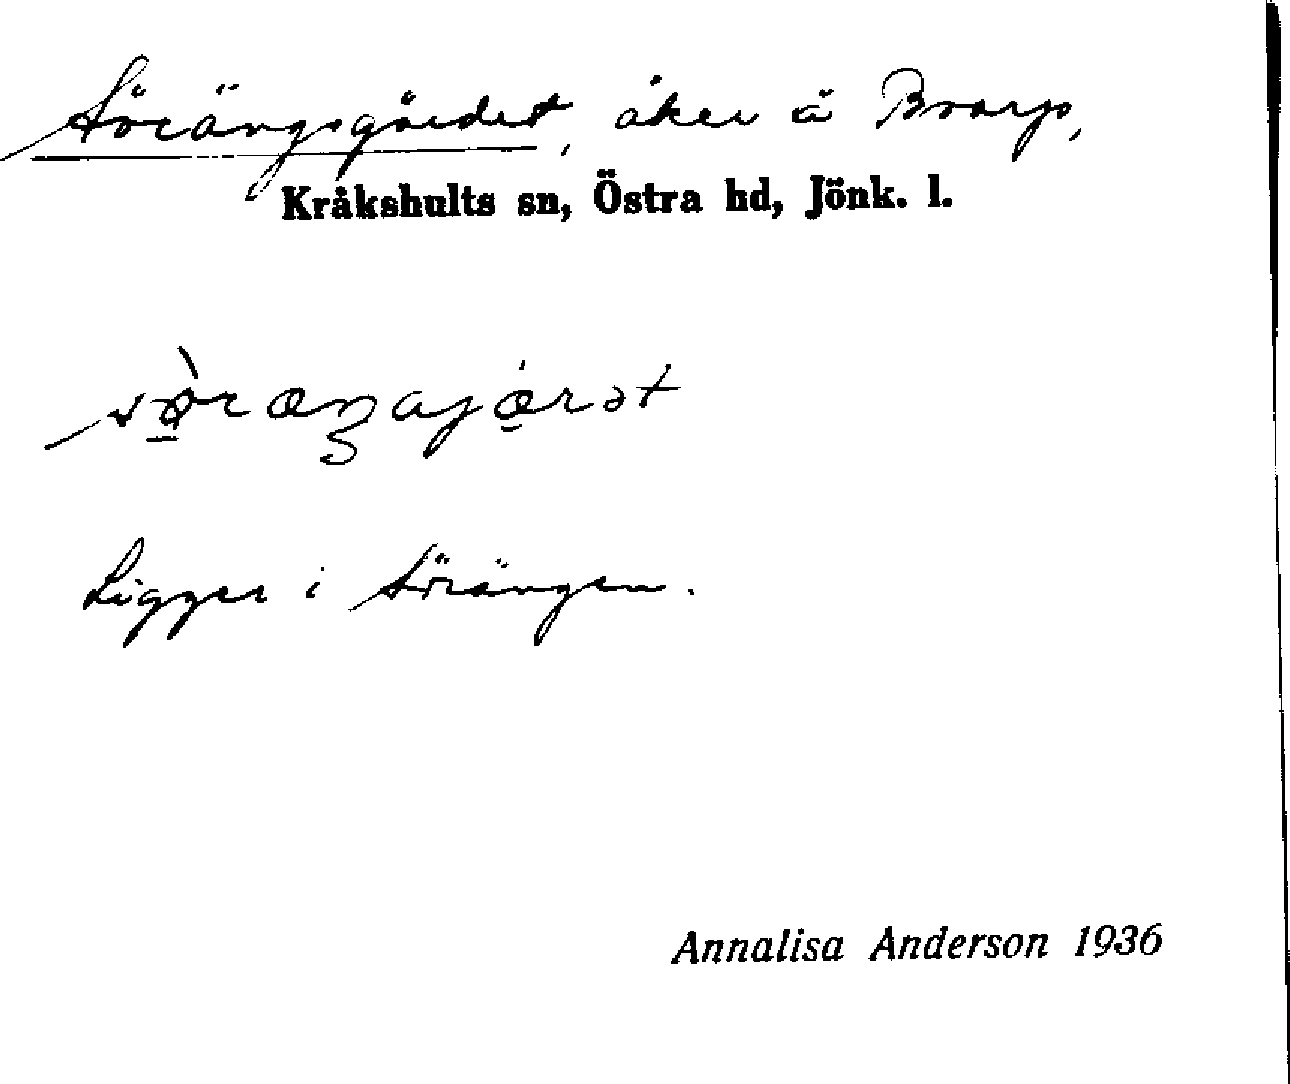 Sörängsgärdet, åker å Broarp,
Kråkshults sn, Östra hd, Jönk. l.
Ligger i Sörängen.
Annalisa Anderson 1936